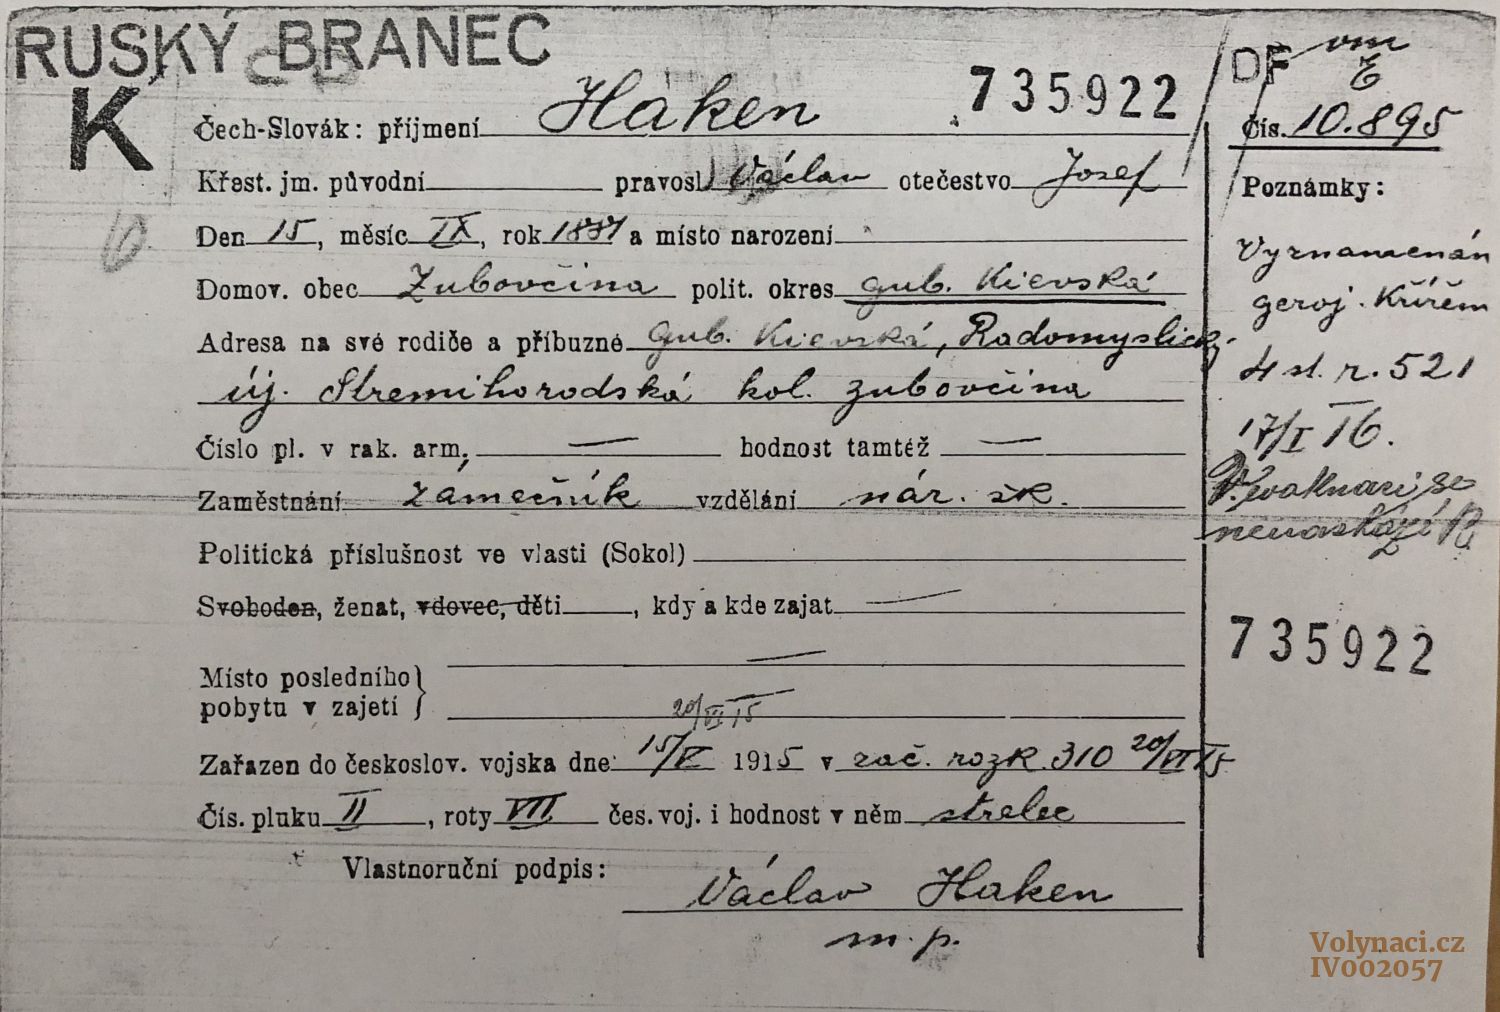 RUSKÝ BRANEC
K
Čech-Slovák: příjmení Haken 735922
Křest. jm. původní pravosl. Václav otečestvo Josef
Den 15, měsíc IX, rok 1887 a místo narození
Domov. obec Zubovčina polit. okres gub. Kievská
Adresa na své rodiče a příbuzné Gub. Kievská, Radomyslický
új. Stremihorodská kol. zubovčina
Číslo pl. v rak. arm. — hodnost tamtéž —
Zaměstnání zámečník vzdělání nár. šk.
Politická příslušnost ve vlasti (Sokol)
Svoboden, ženat, vdovec, děti , kdy a kde zajat —
Místo posledního
pobytu v zajetí } —
20/VI 15
Zařazen do českoslov. vojska dne: 15/V 1915 v zač. rozk. 310 20/VI 15
Čís. pluku II, roty VII čes. voj. i hodnost v něm strelec
Vlastnoruční podpis:
Václav Haken
m. p.
DF
Čís. 10.895
Poznámky:
Vyznamenán
geroj. Křížem
4 st. r. 521
17/I 16.
735922
Volynaci.cz
IV002057